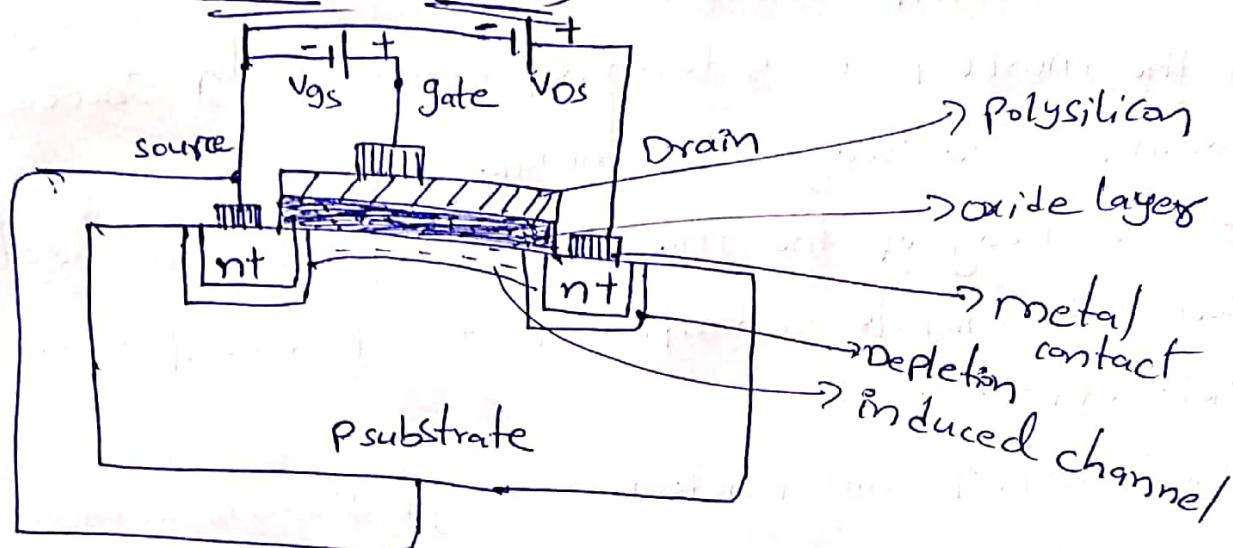 - +
- +
Vgs
gate
VDS
source
Drain
polysilicon
oxide layer
n+
n+
metal
contact
Depletion
induced channel
p substrate